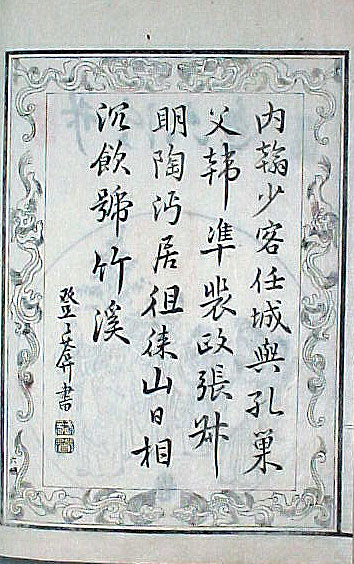 内翰少客任城與孔巢
父韓凖裴政張叔
明陶沔居徂徕山日相
沉飲號竹溪
書